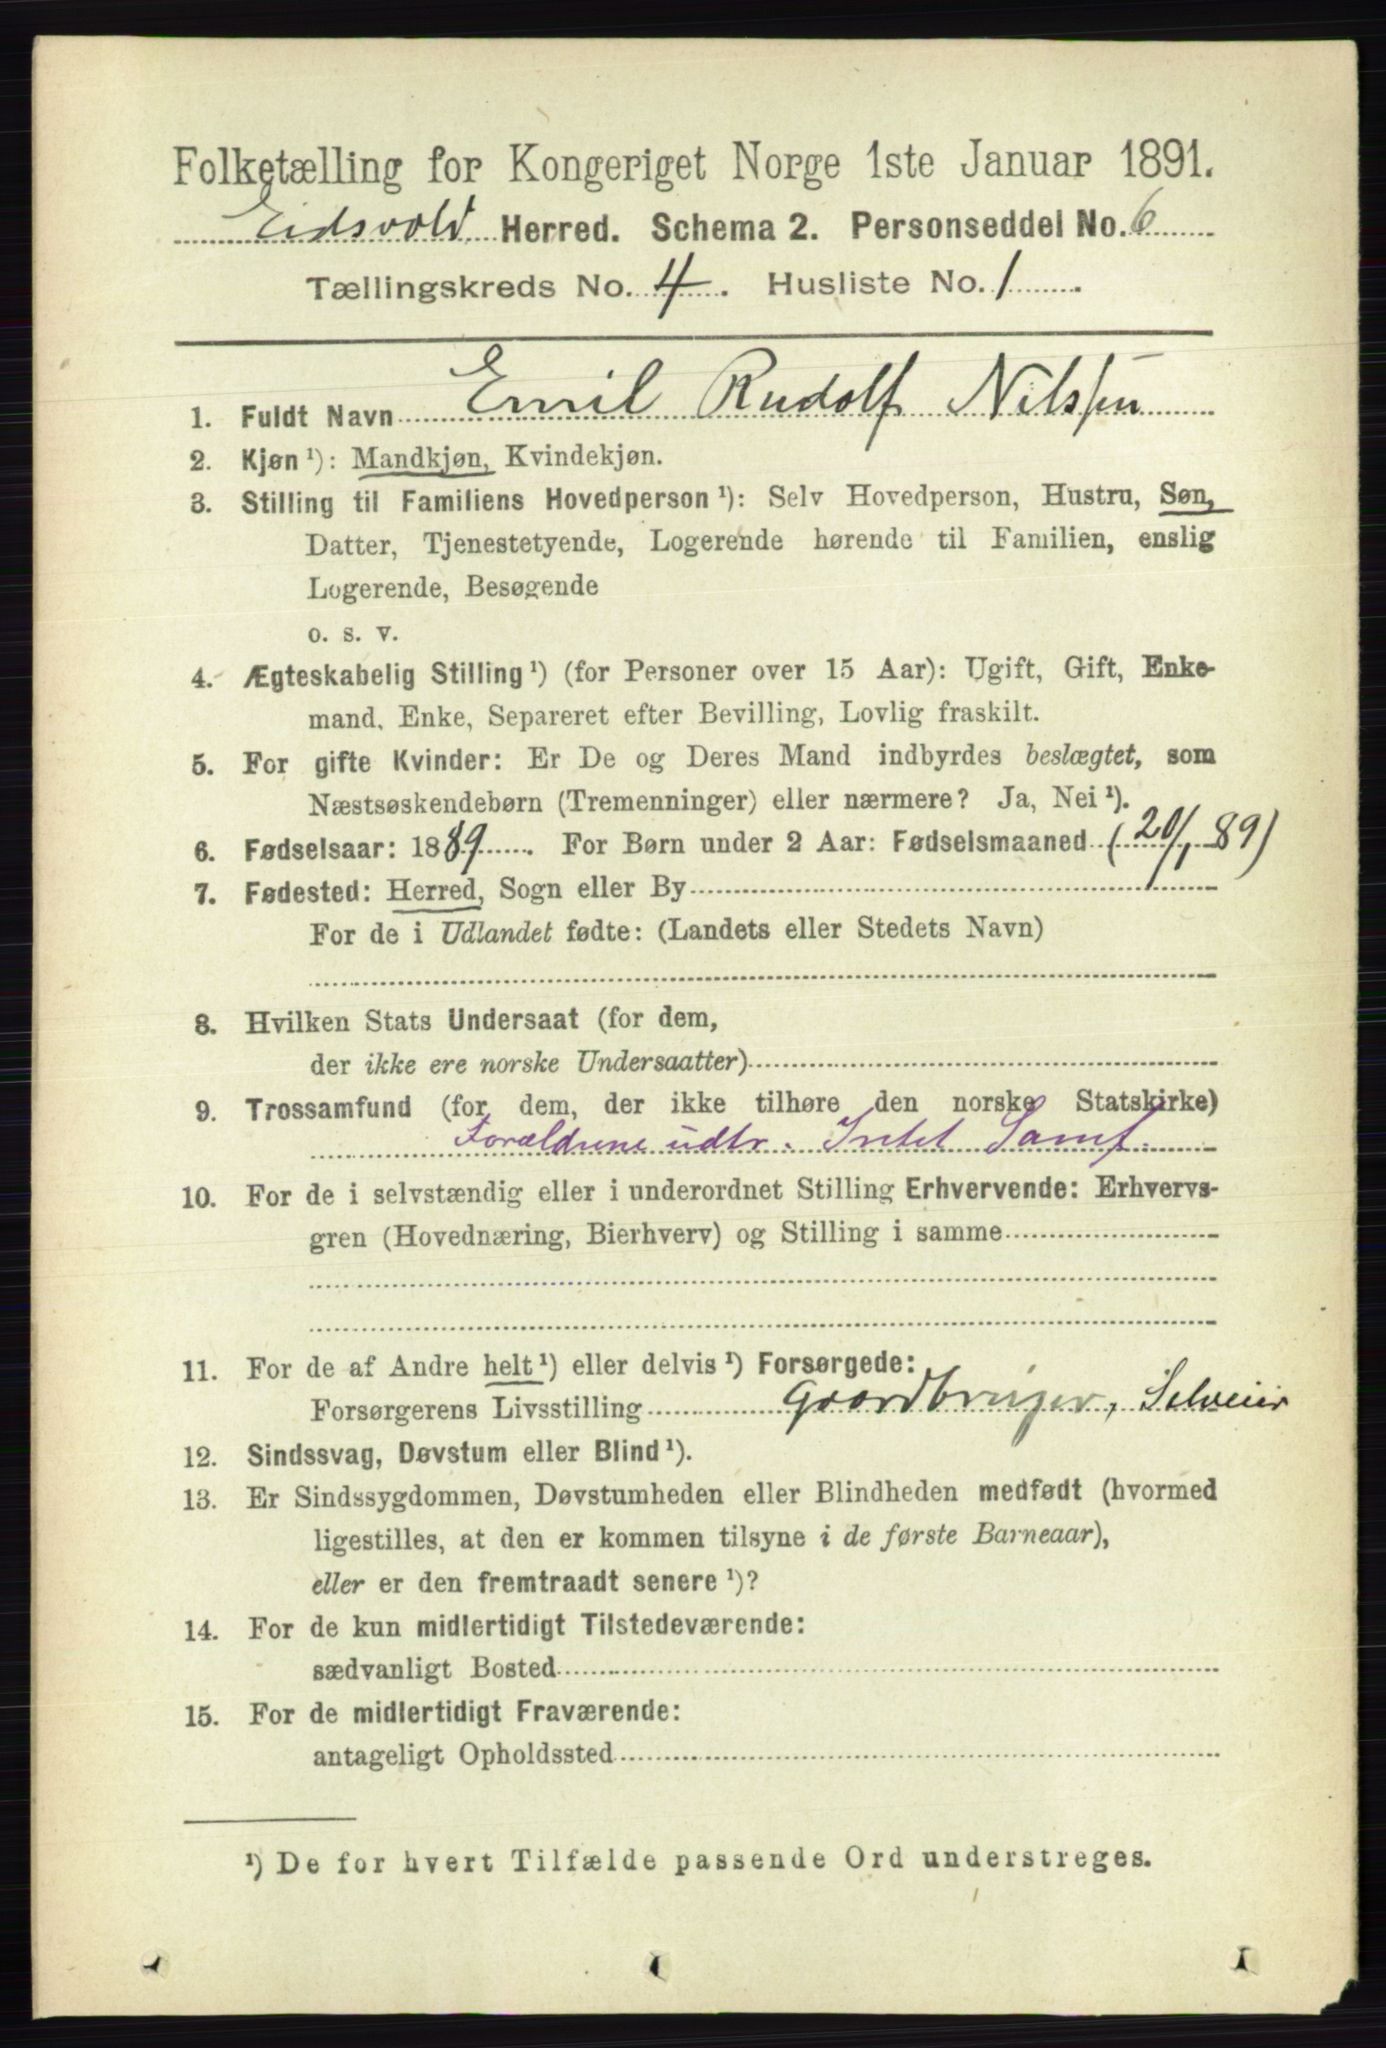 Folketælling for Kongeriget Norge 1ste Januar 1891.
Eidsvold Herred. Schema 2. Personseddel No. 6
Tællingskreds No. 4. Husliste No. 1
1. Fuldt Navn Emil Rudolf Nilssen
2. Kjøn ¹): Mandkjøn, Kvindekjøn.
3. Stilling til Familiens Hovedperson ¹): Selv Hovedperson, Hustru, Søn,
Datter, Tjenestetyende, Logerende hørende til Familien, enslig
Logerende, Besøgende
o. s. v.
4. Ægteskabelig Stilling ¹) (for Personer over 15 Aar): Ugift, Gift, Enke-
mand, Enke, Separeret efter Bevilling, Lovlig fraskilt.
5. For gifte Kvinder: Er De og Deres Mand indbyrdes beslægtet, som
Næstsøskendebørn (Tremenninger) eller nærmere? Ja, Nei ¹).
6. Fødselsaar: 1889. For Børn under 2 Aar: Fødselsmaaned (20/1 89)
7. Fødested: Herred, Sogn eller By
For de i Udlandet fødte: (Landets eller Stedets Navn)
8. Hvilken Stats Undersaat (for dem,
der ikke ere norske Undersaatter)
9. Trossamfund (for dem, der ikke tilhøre den norske Statskirke)
Forældrene udtr. Intet Samf.
10. For de i selvstændig eller i underordnet Stilling Erhvervende: Erhvervs-
gren (Hovednæring, Bierhverv) og Stilling i samme
11. For de af Andre helt ¹) eller delvis ¹) Forsørgede:
Forsørgerens Livsstilling Gaardbruger, Selveier
12. Sindssvag, Døvstum eller Blind ¹).
13. Er Sindssygdommen, Døvstumheden eller Blindheden medfødt (hvormed
ligestilles, at den er kommen tilsyne i de første Barneaar),
eller er den fremtraadt senere ¹)?
14. For de kun midlertidigt Tilstedeværende:
sædvanligt Bosted
15. For de midlertidigt Fraværende:
antageligt Opholdssted
¹) De for hvert Tilfælde passende Ord understreges.